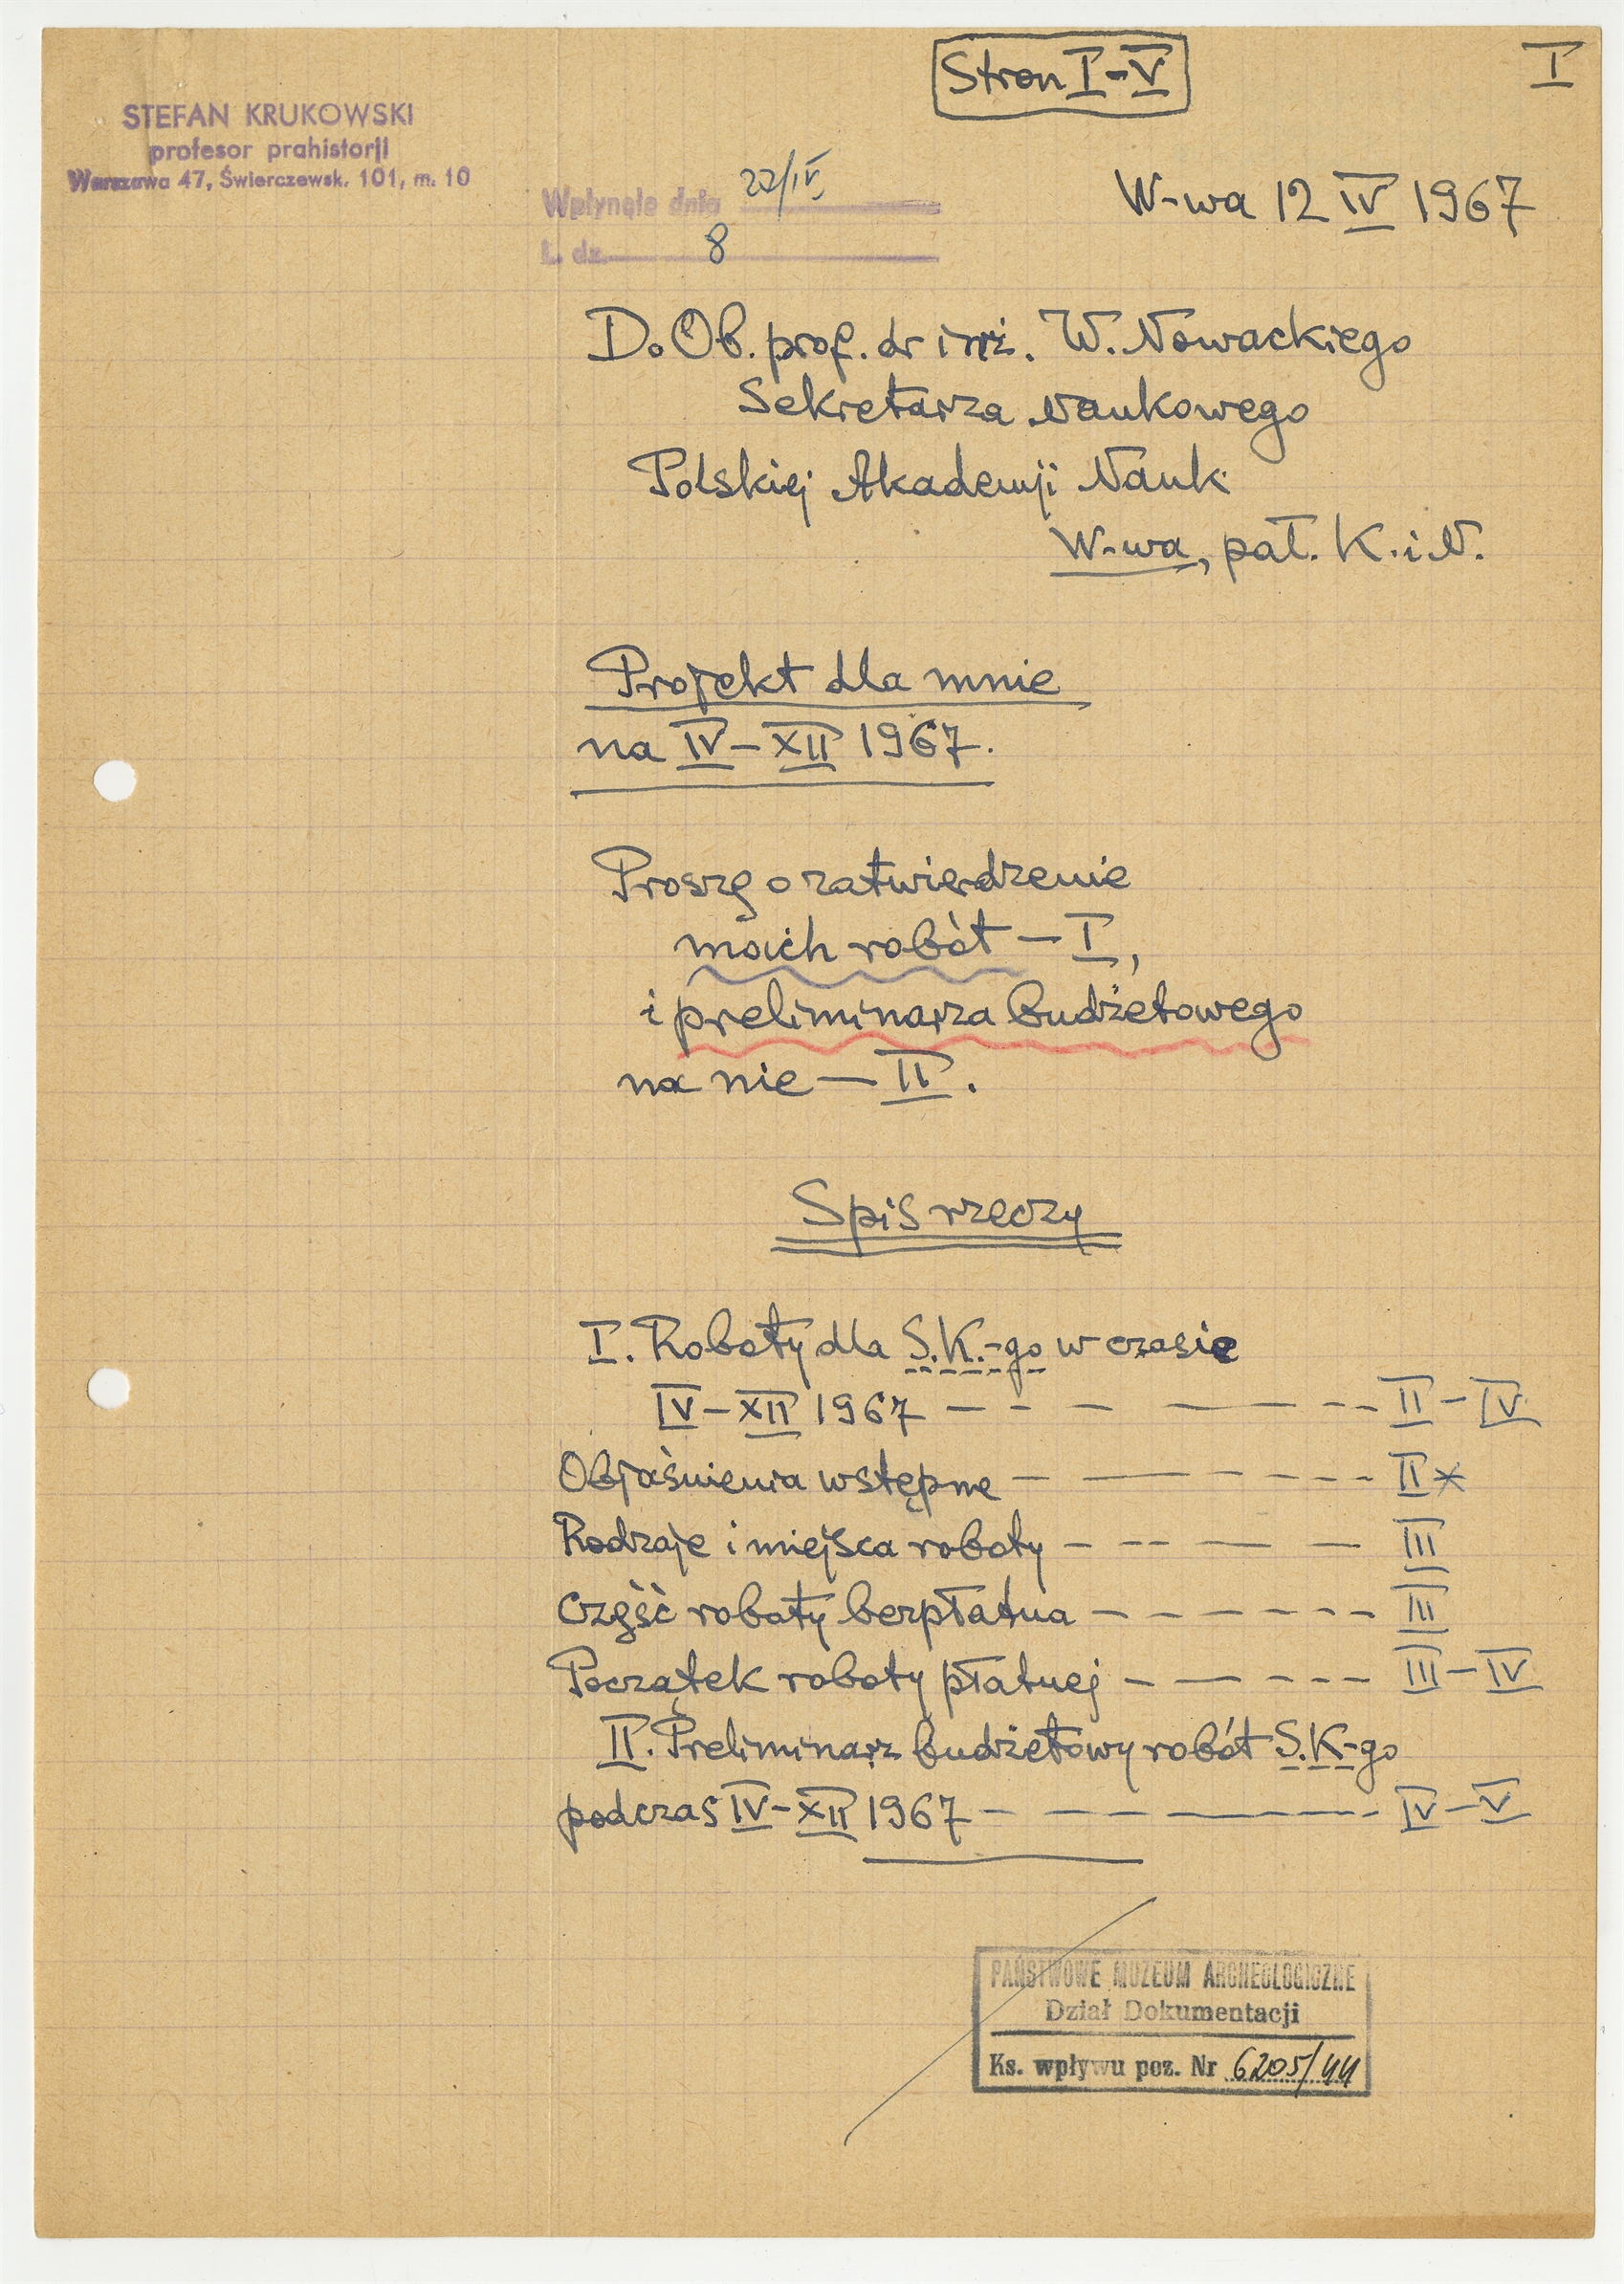 Stron I-V
I
STEFAN KRUKOWSKI
profesor prahistorji
Warszawa 47, Świerczewsk. 101, m. 10
Wpłynęło dnia 22/IV
L. dz. 8
W-wa 12 IV 1967
Do Ob. prof. dr inż. W. Nowackiego
Sekretarza Naukowego
Polskiej Akademji Nauk
W-wa, pał. K. i N.
Projekt dla mnie
na IV-XII 1967.
Proszę o zatwierdzenie
moich robót - I,
i preliminarza budżetowego
na nie - II.
Spis rzeczy
I. Roboty dla S.K.-go w czasie
IV-XII 1967 - - - - - - - - II-IV
Objaśnienia wstępne - - - - - - - II x
Rodzaje i miejsca roboty - - - - - III
Część roboty bezpłatna - - - - - - III
Początek roboty płatnej - - - - - - III-IV
II. Preliminarz budżetowy robót S.K-go
podczas IV-XII 1967 - - - - - - IV-V
PAŃSTWOWE MUZEUM ARCHEOLOGICZNE
Dział Dokumentacji
Ks. wpływu poz. Nr 6205/44